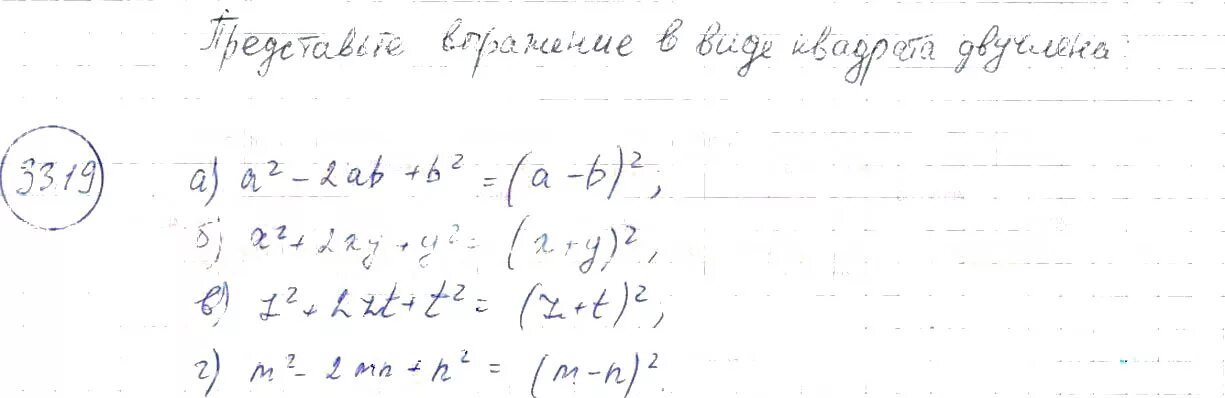 Представьте выражение в виде квадрата двучлена:
33.19 а) a² - 2ab + b² = (a - b)²,
б) x² + 2xy + y² = (x + y)²,
в) z² + 2zt + t² = (z + t)²,
г) m² - 2mn + n² = (m - n)²